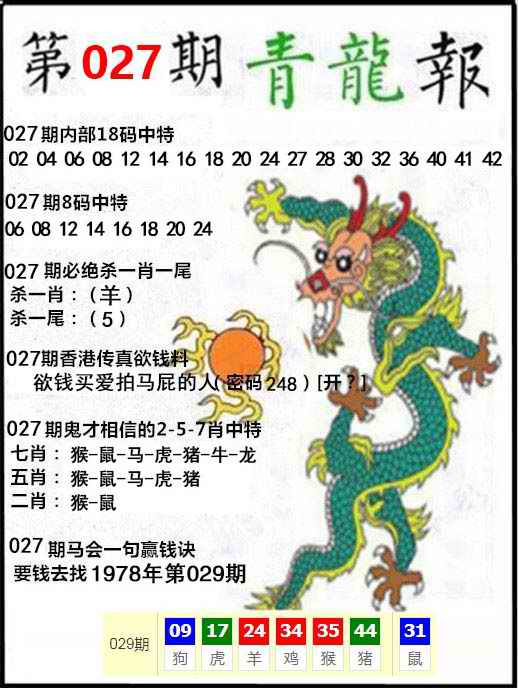 第027期青龍報
027期内部18码中特
02 04 06 08 12 14 16 18 20 24 27 28 30 32 36 40 41 42
027期8码中特
06 08 12 14 16 18 20 24
027期必绝杀一肖一尾
杀一肖：（羊）
杀一尾：（5）
027期香港传真欲钱料
欲钱买爱拍马屁的人（密码248）[开？]
027期鬼才相信的2-5-7肖中特
七肖：猴-鼠-马-虎-猪-牛-龙
五肖：猴-鼠-马-虎-猪
二肖：猴-鼠
027期马会一句赢钱诀
要钱去找1978年第029期
029期 09 17 24 34 35 44 31
狗 虎 羊 鸡 猴 猪 鼠